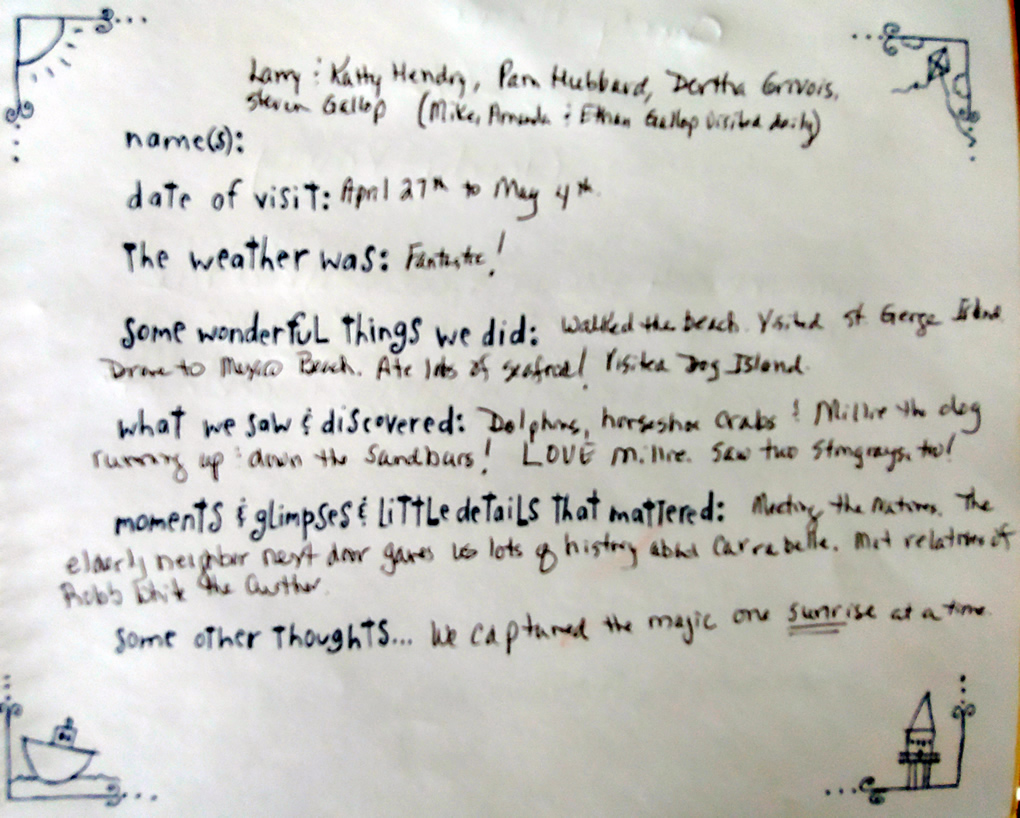 Larry & Kathy Hendry, Pam Hubbard, Dertha Grivois,
Steven Gallop (Mike, Amanda & Ethan Gallop visited daily)
name(s):
date of visit: April 27th to May 4th.
the weather was: Fantastic!
some wonderful things we did: Walked the beach. Visited St. Gerge Island.
Drove to Mexico Beach. Ate lots of seafood! Visited Dog Island.
what we saw & discovered: Dolphins, horseshoe crabs & Millie the dog
running up & down the sandbars! LOVE Millie. Saw two stingrays, too!
moments & glimpses & little details that mattered: Meeting the natives. The
elderly neighbor next door gave us lots of history about Carrabelle. Met relatives of
Robb White the author.
some other thoughts... We captured the magic one sunrise at a time.